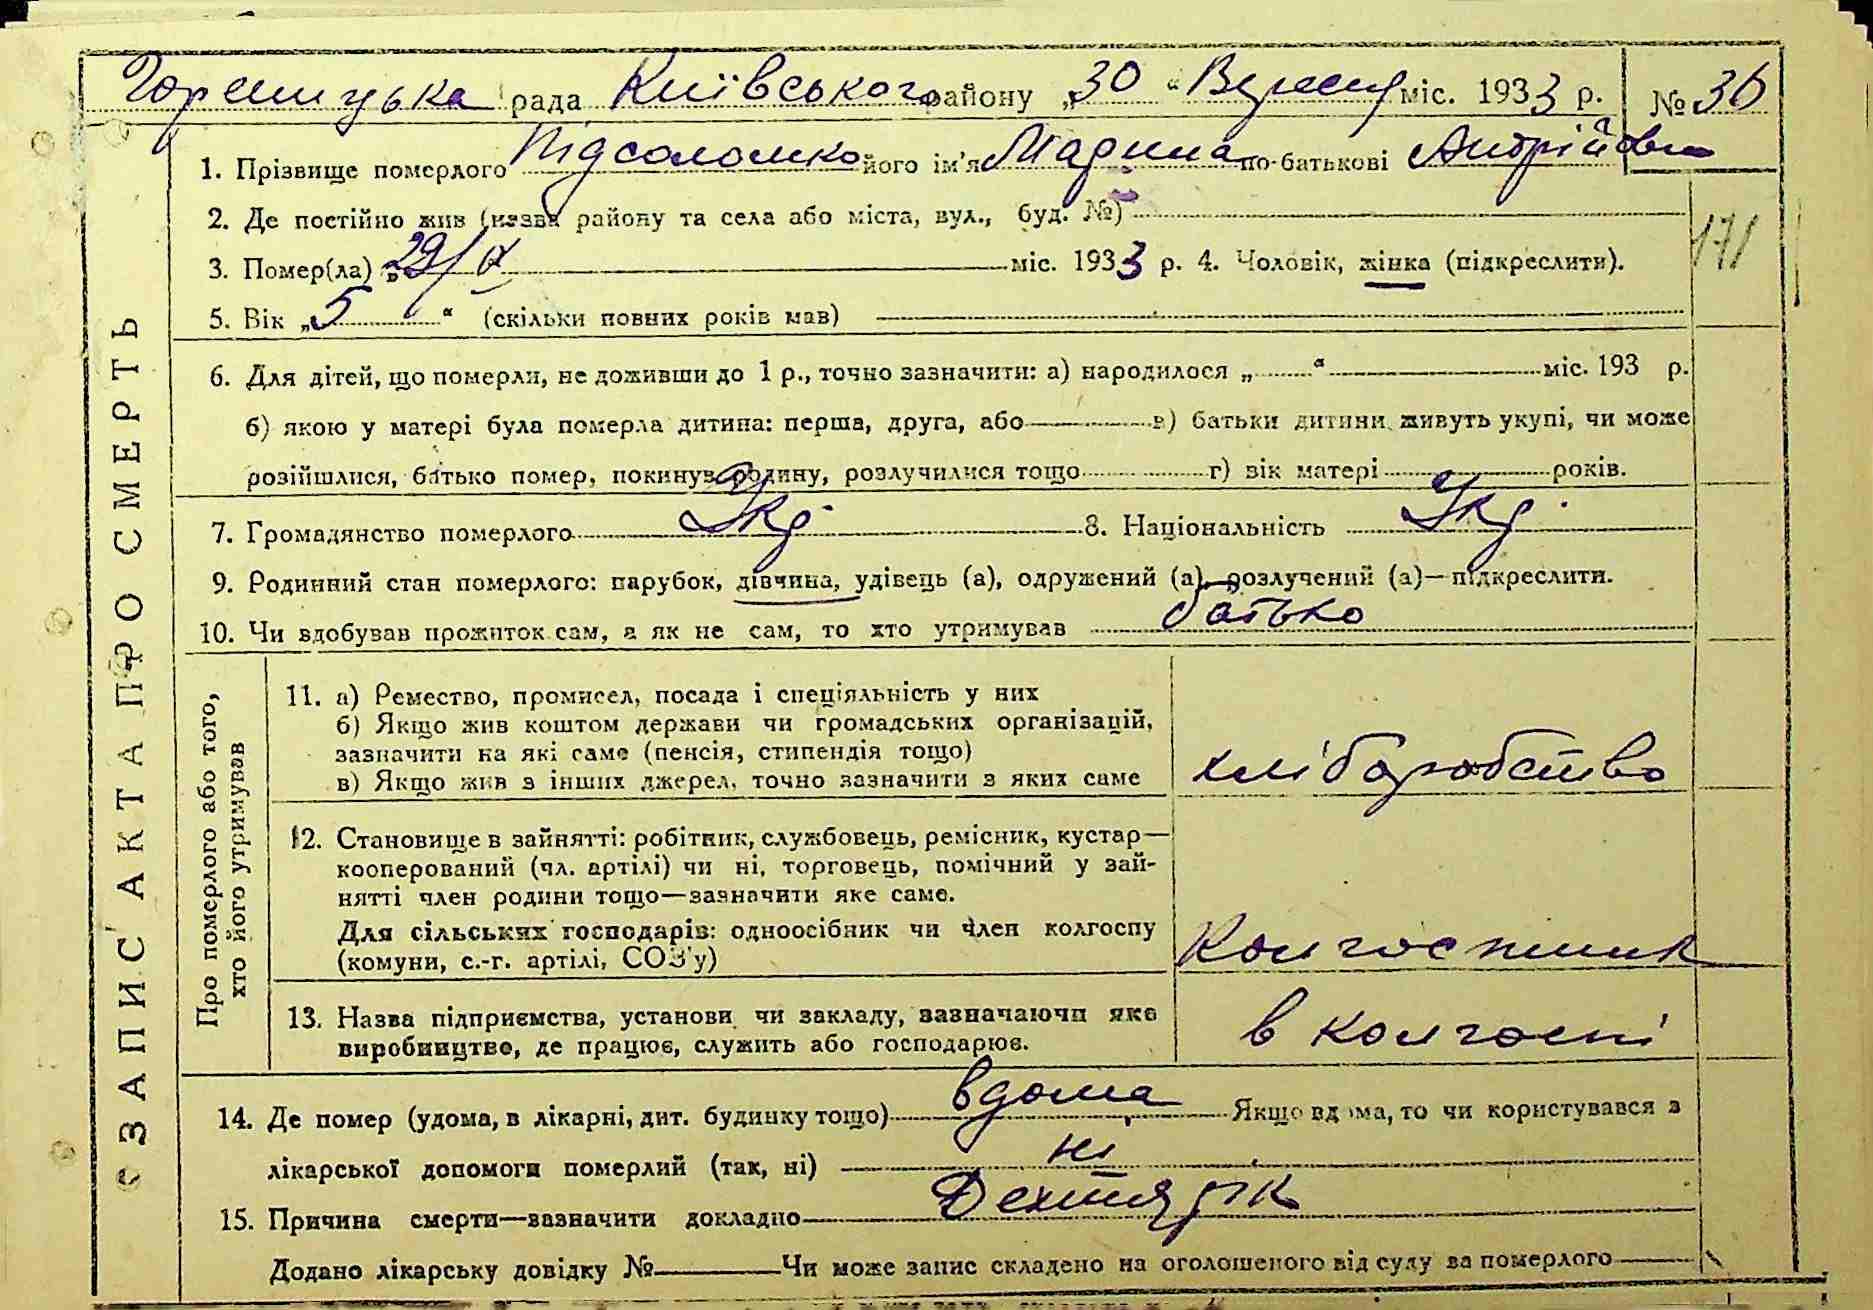 Горениցька рада Київського району „30“ Вересня міс. 1933 р. № 36
1. Прізвище померлого Підсоломко його ім'я Марина по-батькові Андрійовна
2. Де постійно жив (назва району та села або міста, вул., буд. №)
171
3. Помер(ла) „29/IX міс. 1933 р. 4. Чоловік, жінка (підкреслити).
5. Вік „5“ (скільки повних років мав)
6. Для дітей, що померли, не доживши до 1 р., точно зазначити: а) народилося „ “ міс. 193 р.
б) якою у матері була померла дитина: перша, друга, або в) батьки дитини живуть укупі, чи може
розійшлися, батько помер, покинув родину, розлучилися тощо г) вік матері років.
7. Громадянство померлого Укр. 8. Національність Укр.
9. Родинний стан померлого: парубок, дівчина, удівець (а), одружений (а), розлучений (а)—підкреслити.
10. Чи вдобував прожиток сам, а як не сам, то хто утримував батько
ЗАПИС АКТА ПРО СМЕРТЬ
Про померлого або того,
хто його утримував
11. а) Ремество, промисел, посада і спеціяльність у них
б) Якщо жив коштом держави чи громадських організацій,
зазначити на які саме (пенсія, стипендія тощо)
в) Якщо жив з інших джерел, точно зазначити з яких саме
хліборобство
12. Становище в зайнятті: робітник, службовець, ремісник, кустар—
кооперований (чл. артілі) чи ні, торговець, помічний у зай-
нятті член родини тощо—зазначити яке саме.
Для сільських господарів: одноосібник чи член колгоспу
(комуни, с.-г. артілі, СОЗ'у)
Колгоспник
13. Назва підприємства, установи чи закладу, зазначаючи яке
виробництво, де працює, служить або господарює.
в колгоспі
14. Де помер (удома, в лікарні, дит. будинку тощо) вдома Якщо вдома, то чи користувався з
лікарської допомоги померлий (так, ні) ні
15. Причина смерти—зазначити докладно Дехтярік
Додано лікарську довідку № Чи може запис складено на оголошеного від суду за померлого